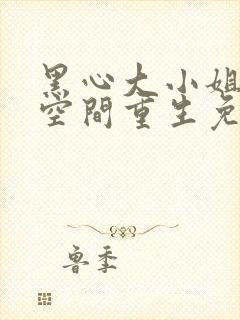 黑心大小姐
空間重生免
魯季